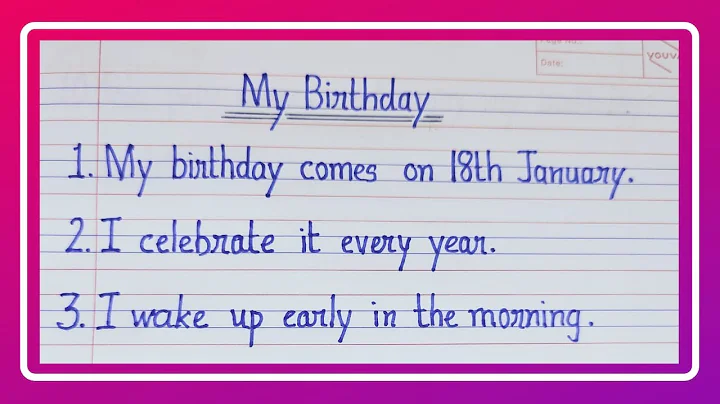 Date:
YOUVA
My Birthday
1. My birthday comes on 18th January.
2. I celebrate it every year.
3. I wake up early in the morning.